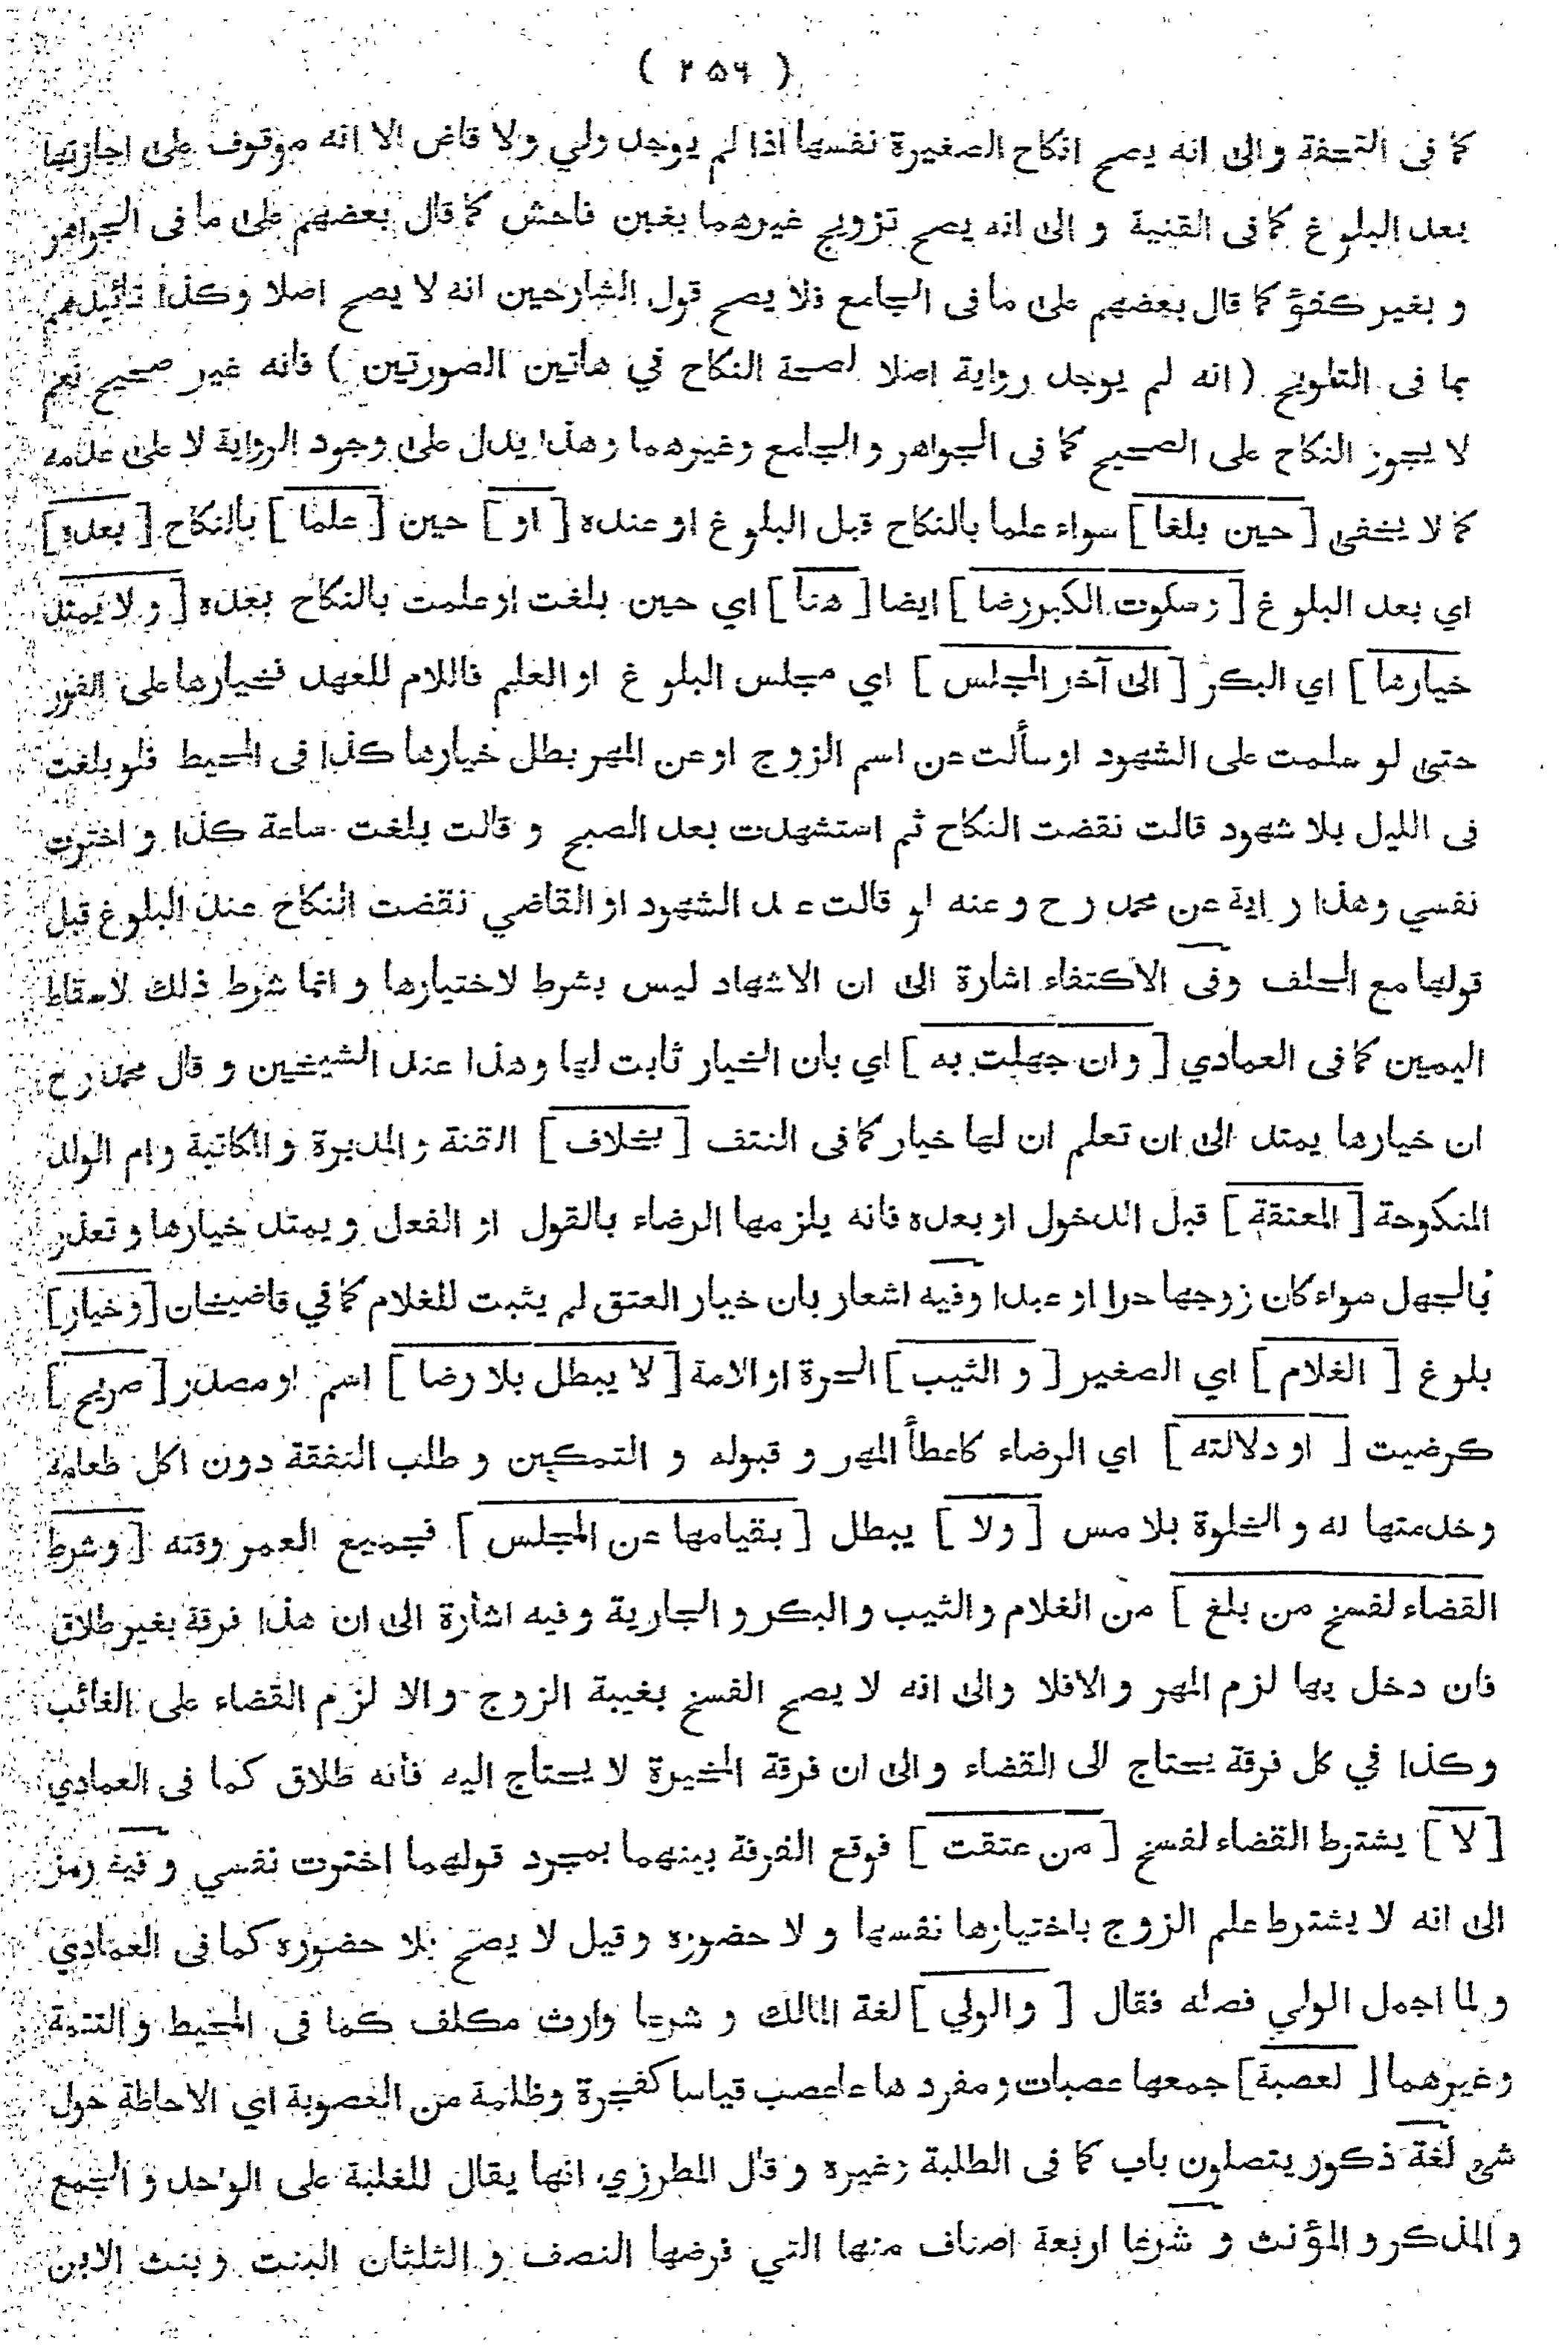 ( ٢٥٦ )
كما فى التحفة والى انه يصح انكاح الصغيرة نفسها اذا لم يوجد ولي ولا قاض الا انه موقوف على اجازتها
بعد البلوغ كما فى القنية و الى انه يصح تزويج غيرهما بغبن فاحش كما قال بعضهم على ما فى الجواهر
و بغير كفؤ كما قال بعضهم على ما فى الجامع فلا يصح قول الشارحين انه لا يصح اصلا وكذا تائيدهم
بما فى التلويح ( انه لم يوجد رواية اصلا لصحة النكاح في هاتين الصورتين ) فانه غير صحيح نعم
لا يجوز النكاح على الصحيح كما فى الجواهر و الجامع وغيرهما وهذا يدل على وجود الرواية لا على عدمه
كما لا يخفى [ حين بلغا ] سواء علما بالنكاح قبل البلوغ او عنده [ او ] حين [ علما ] بالنكاح [ بعده ]
اي بعد البلوغ [ وسكوت البكر رضا ] ايضا [ هنا ] اي حين بلغت او علمت بالنكاح بعده [ و لا يمتد
خيارها ] اي البكر [ الى آخر المجلس ] اي مجلس البلوغ او العلم فاللام للعهد فخيارها على الفور
حتى لو سلمت على الشهود او سألت عن اسم الزوج او عن المهر بطل خيارها كذا فى المحيط فلو بلغت
فى الليل بلا شهود قالت نقضت النكاح ثم استشهدت بعد الصبح و قالت بلغت ساعة كذا و اخترت
نفسي وهذا رواية عن محمد رح وعنه لو قالت عند الشهود او القاضي نقضت النكاح عند البلوغ قبل
قولها مع الحلف وفى الاكتفاء اشارة الى ان الاشهاد ليس بشرط لاختيارها و انما شرط ذلك لاسقاط
اليمين كما فى العمادي [ وان جهلت به ] اي بان الخيار ثابت لها وهذا عند الشيخين و قال محمد رح
ان خيارها يمتد الى ان تعلم ان لها خيار كما فى النتف [ بخلاف ] القنة و المدبرة و المكاتبة وام الولد
المنكوحة [ المعتقة ] قبل الدخول او بعده فانه يلزمها الرضاء بالقول او الفعل و يمتد خيارها و تعذر
بالجهل سواء كان زوجها حرا او عبدا وفيه اشعار بان خيار العتق لم يثبت للغلام كما في قاضيخان [ وخيار ]
بلوغ [ الغلام ] اي الصغير [ و الثيب ] الحرة او الامة [ لا يبطل بلا رضا ] اسم او مصدر [ صريح ]
كرضيت [ او دلالته ] اي الرضاء كاعطأ المهر و قبوله و التمكين و طلب النفقة دون اكل طعامه
وخدمتها له و الخلوة بلا مس [ ولا ] يبطل [ بقيامها عن المجلس ] فجميع العمر وقته [ وشرط
القضاء لفسخ من بلغ ] من الغلام والثيب و البكر و الجارية وفيه اشارة الى ان هذا فرقة بغير طلاق
فان دخل بها لزم المهر والافلا والى انه لا يصح الفسخ بغيبة الزوج والا لزم القضاء على الغائب
وكذا في كل فرقة يحتاج الى القضاء و الى ان فرقة المخيرة لا يحتاج اليه فانه طلاق كما فى العمادي
[ لا ] يشترط القضاء لفسخ [ من عتقت ] فوقع الفرقة بينهما بمجرد قولهما اخترت نفسي و فيه رمز
الى انه لا يشترط علم الزوج باختيارها نفسها و لا حضوره وقيل لا يصح بلا حضوره كما فى العمادي
و لما اجمل الولي فصله فقال [ والولي ] لغة المالك و شرعا وارث مكلف كما فى المحيط و التتمة
وغيرهما [ لعصبة ] جمعها عصبات ومفردها عاصب قياسا كفجرة وظلمة من العصوبة اي الاحاطة حول
شئ لغة ذكور يتصلون باب كما فى الطلبة وغيره و قال المطرزي انها يقال للغلبة على الواحد و الجمع
و المذكر و المؤنث و شرعا اربعة اصناف منها التي فرضها النصف و الثلثان البنت و بنت الابن